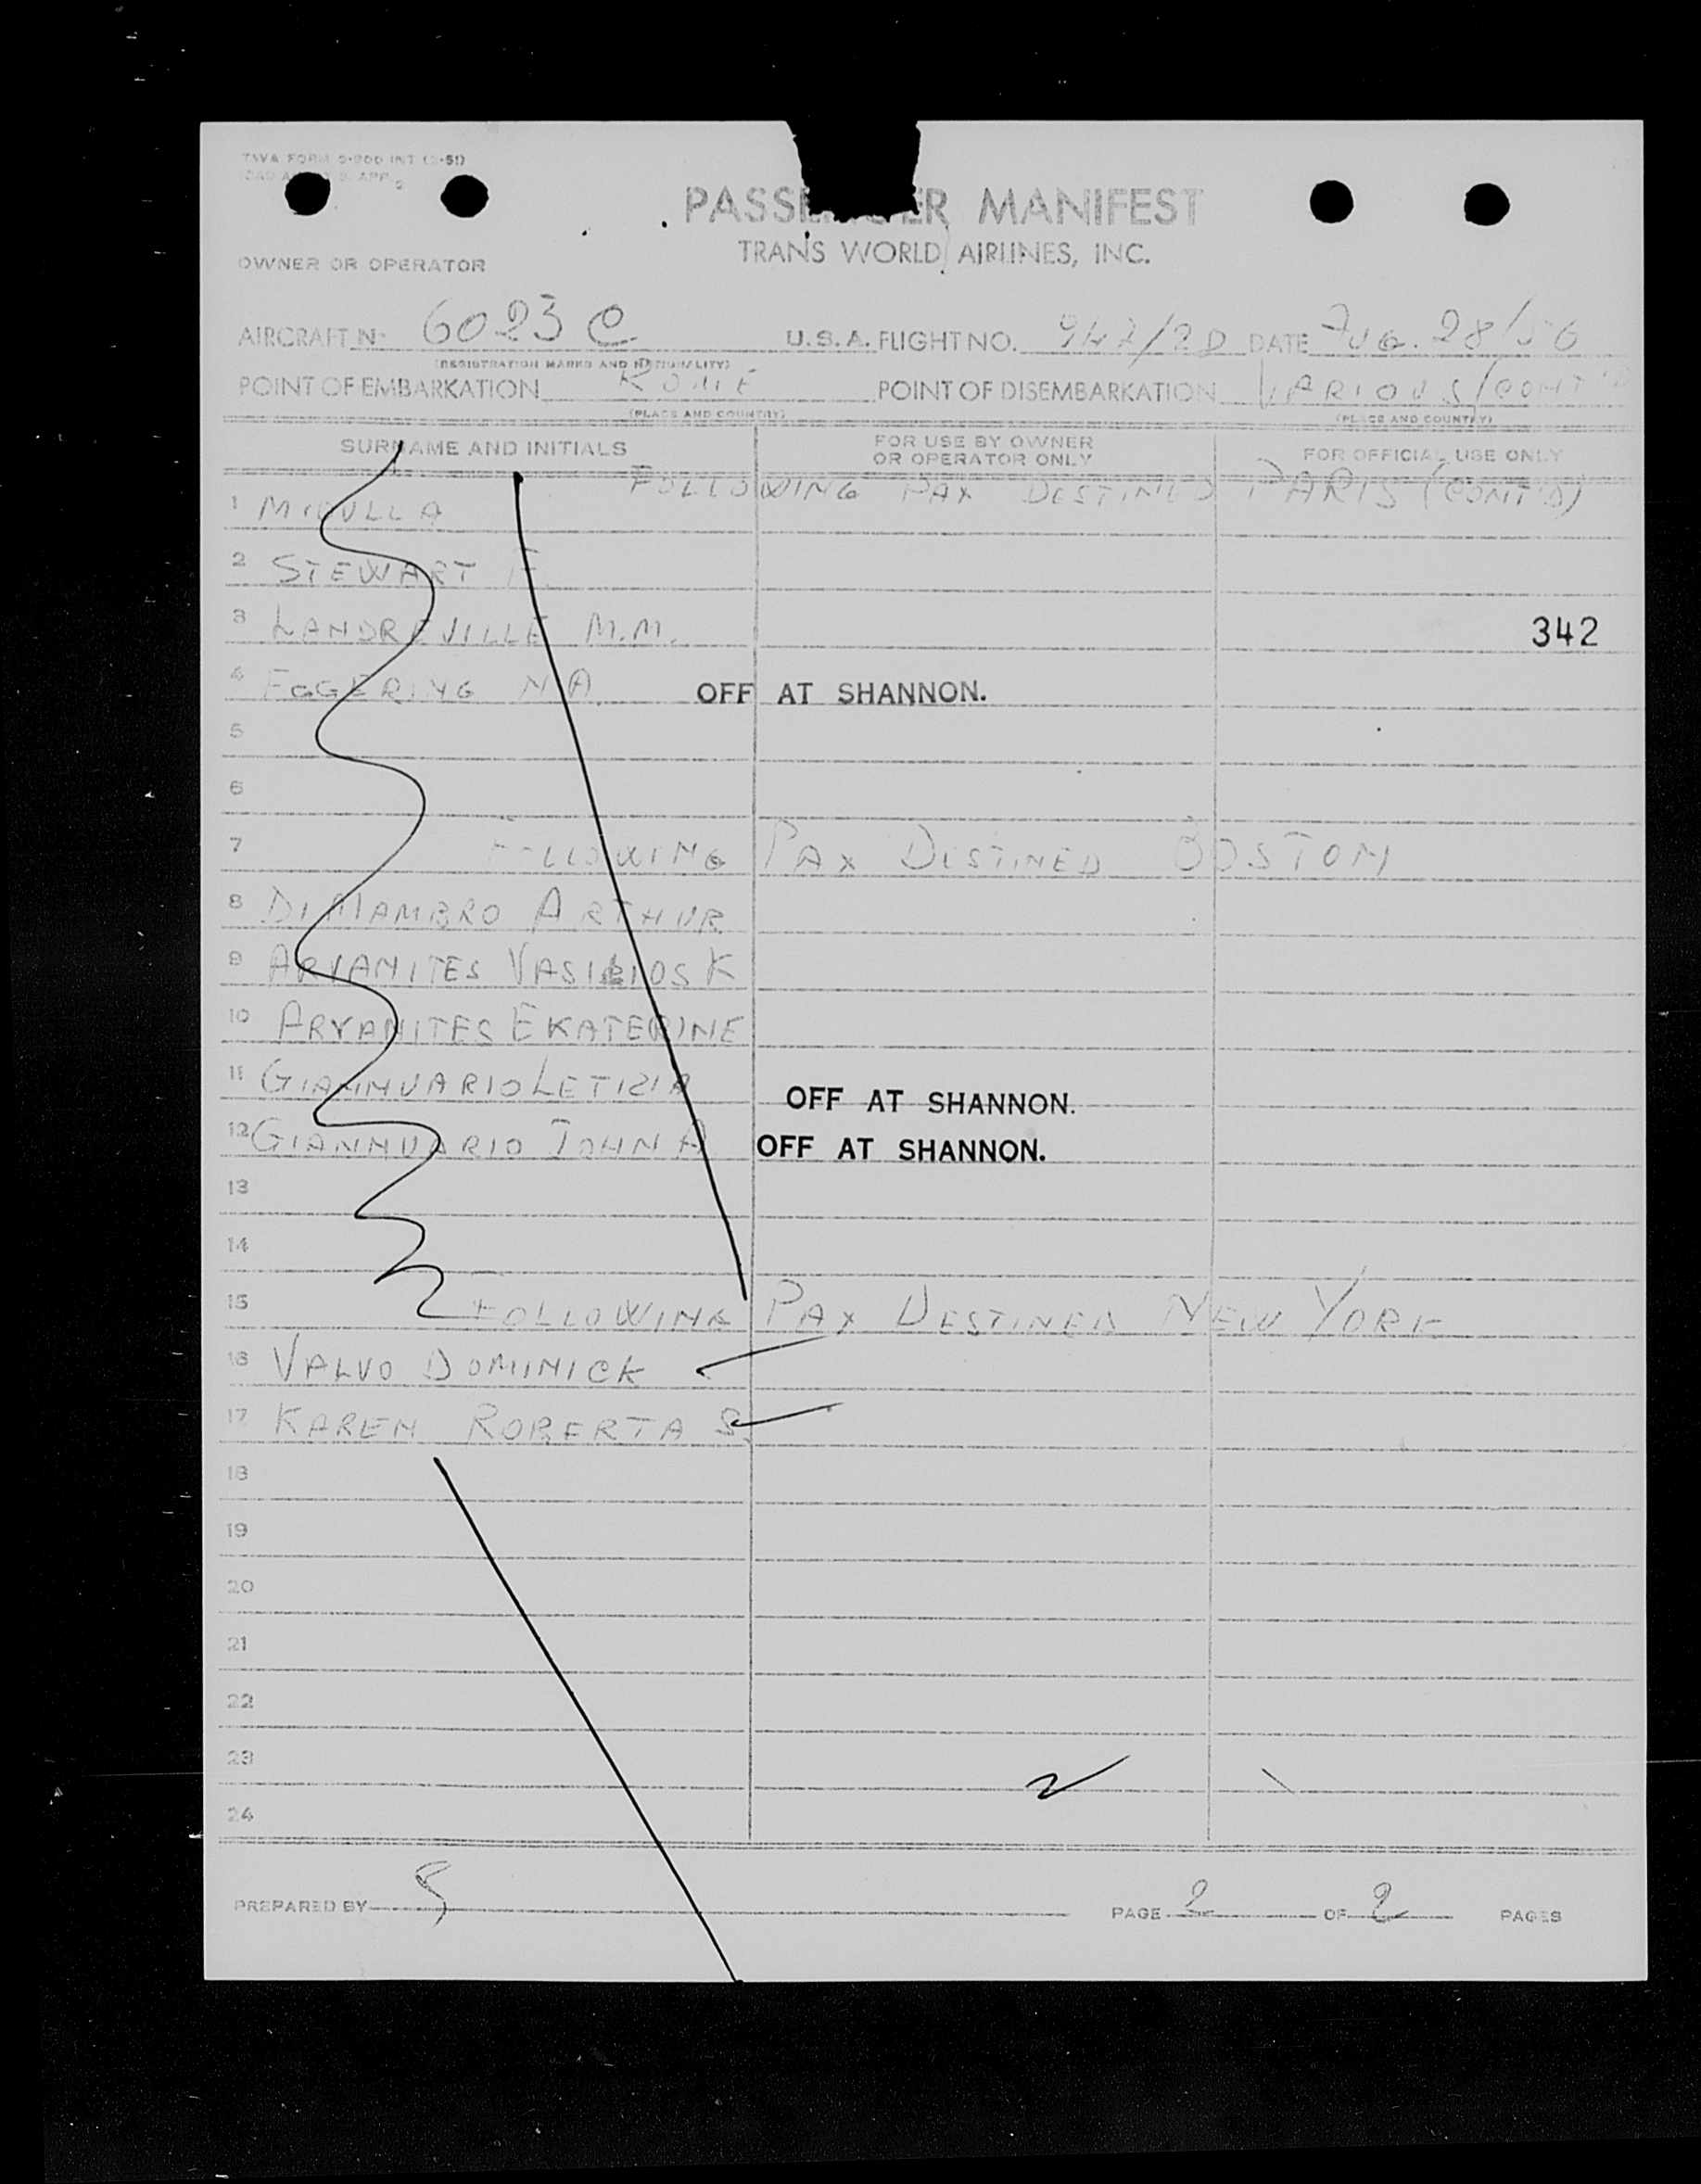 TWA FORM
PASSENGER MANIFEST
TRANS WORLD AIRLINES, INC.
OWNER OR OPERATOR
AIRCRAFT Nº 6023 C U.S.A. FLIGHT NO. DATE AUG. 28/56
(REGISTRATION MARKS AND NATIONALITY)
POINT OF EMBARKATION ROME POINT OF DISEMBARKATION VARIOUS/CONT'D
(PLACE AND COUNTRY) (PLACE AND COUNTRY)
SURNAME AND INITIALS FOR USE BY OWNER OR OPERATOR ONLY FOR OFFICIAL USE ONLY
FOLLOWING PAX DESTINED PARIS (CONT'D)
1
2 STEWART F.
3 LANDREVILLE M.M. 342
4 EGGERING M A OFF AT SHANNON.
5
6
7 FOLLOWING PAX DESTINED BOSTON
8 DI MAMBRO ARTHUR
9 ARVANITES VASILIOS K
10 ARVANITES EKATERINE
11 GIANNUARIO LETIZIA OFF AT SHANNON.
12 GIANNUARIO JOHN A OFF AT SHANNON.
13
14
15 FOLLOWING PAX DESTINED NEW YORK
16 VALVO DOMINICK
17 KAREN ROBERTA S.
18
19
20
21
22
23
24
PREPARED BY PAGE 2 OF 2 PAGES